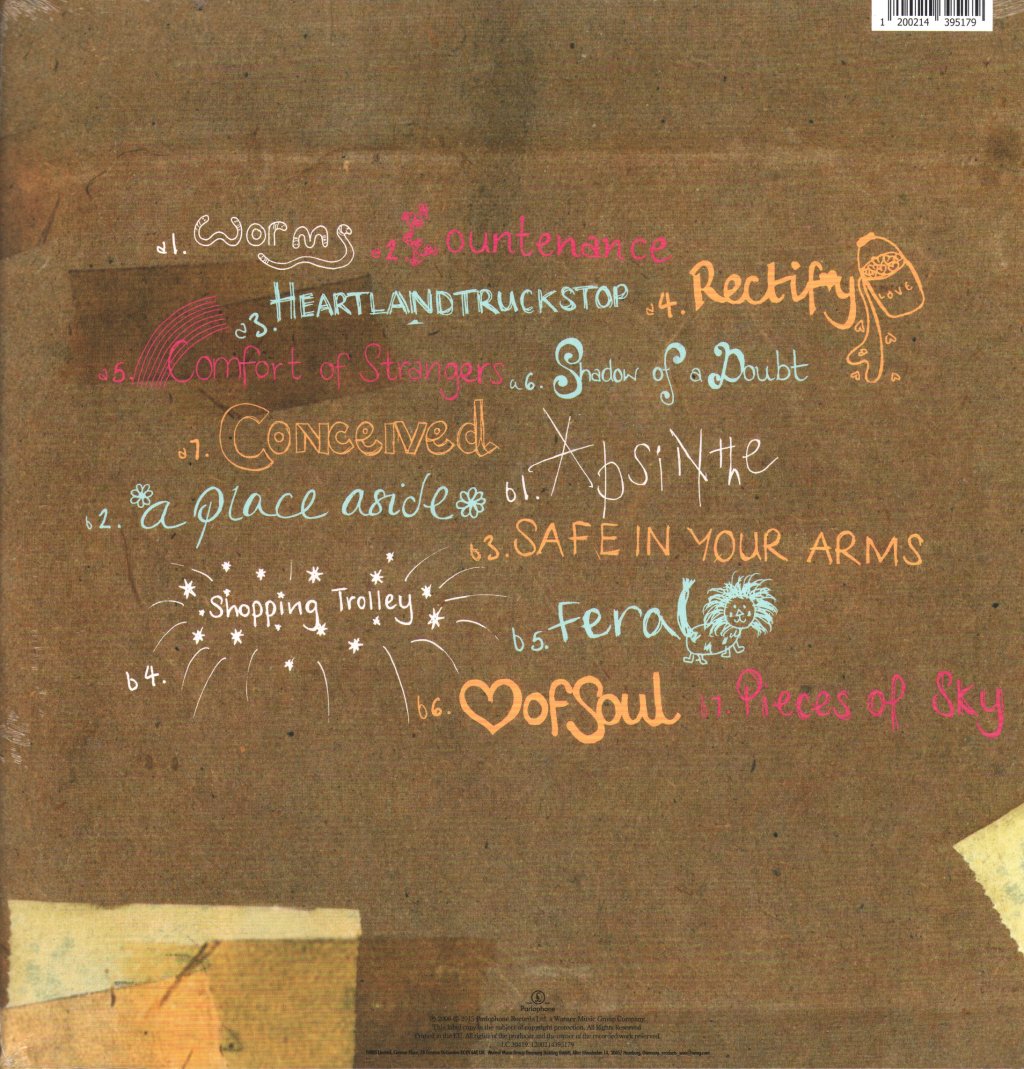 1 200214 395179
a1. Worms
a2 Countenance
a3. HEARTLANDTRUCKSTOP
a4. Rectify
LOVE
a5. Comfort of Strangers
a6. Shadow of a Doubt
a7. Conceived
b1. Absinthe
b2. a place aside
b3. SAFE IN YOUR ARMS
Shopping Trolley
b4.
b5. feral
b6. ♥ofSoul
b7. Pieces of Sky
Parlophone
℗ 2006 © 2015 Parlophone Records Ltd, a Warner Music Group Company.
This label copy is the subject of copyright protection. All Rights Reserved.
Printed in the E.U. All rights of the producer and the owner of the recorded work reserved.
LC 30419. 1200214395179